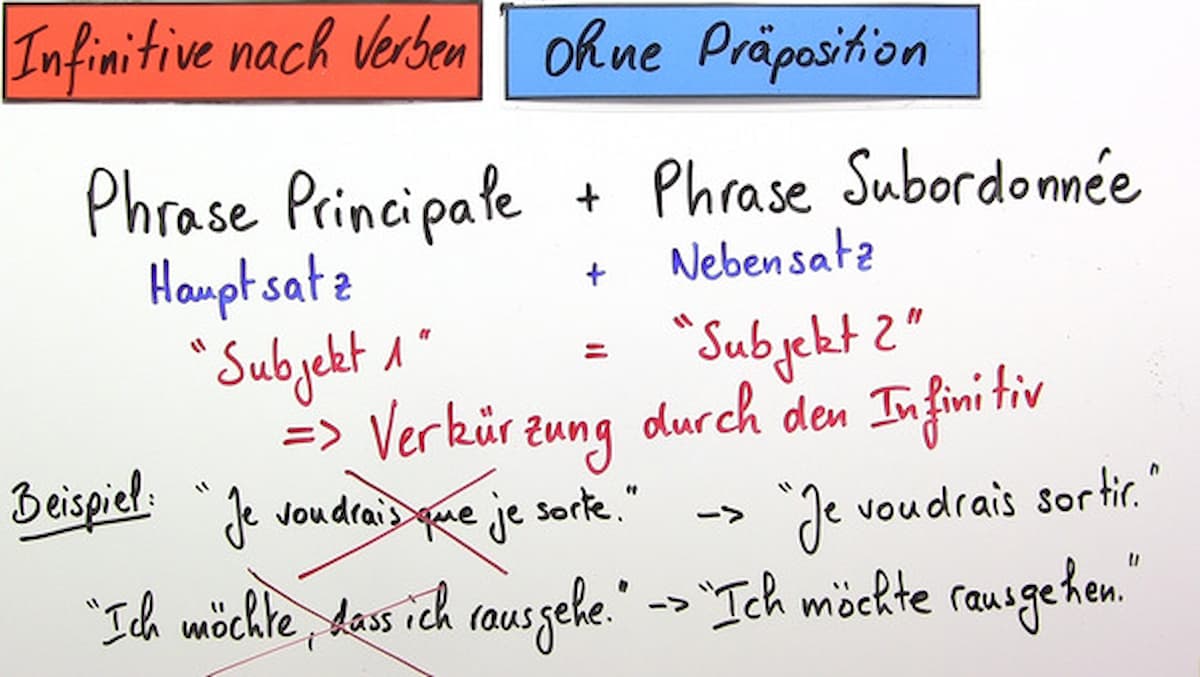 Infinitive nach Verben Ohne Präposition
Phrase Principale + Phrase Subordonnée
Hauptsatz + Nebensatz
"Subjekt 1" = "Subjekt 2"
=> Verkürzung durch den Infinitiv
Beispiel: "Je voudrais que je sorte." -> "Je voudrais sortir."
"Ich möchte, dass ich rausgehe." -> "Ich möchte rausgehen."